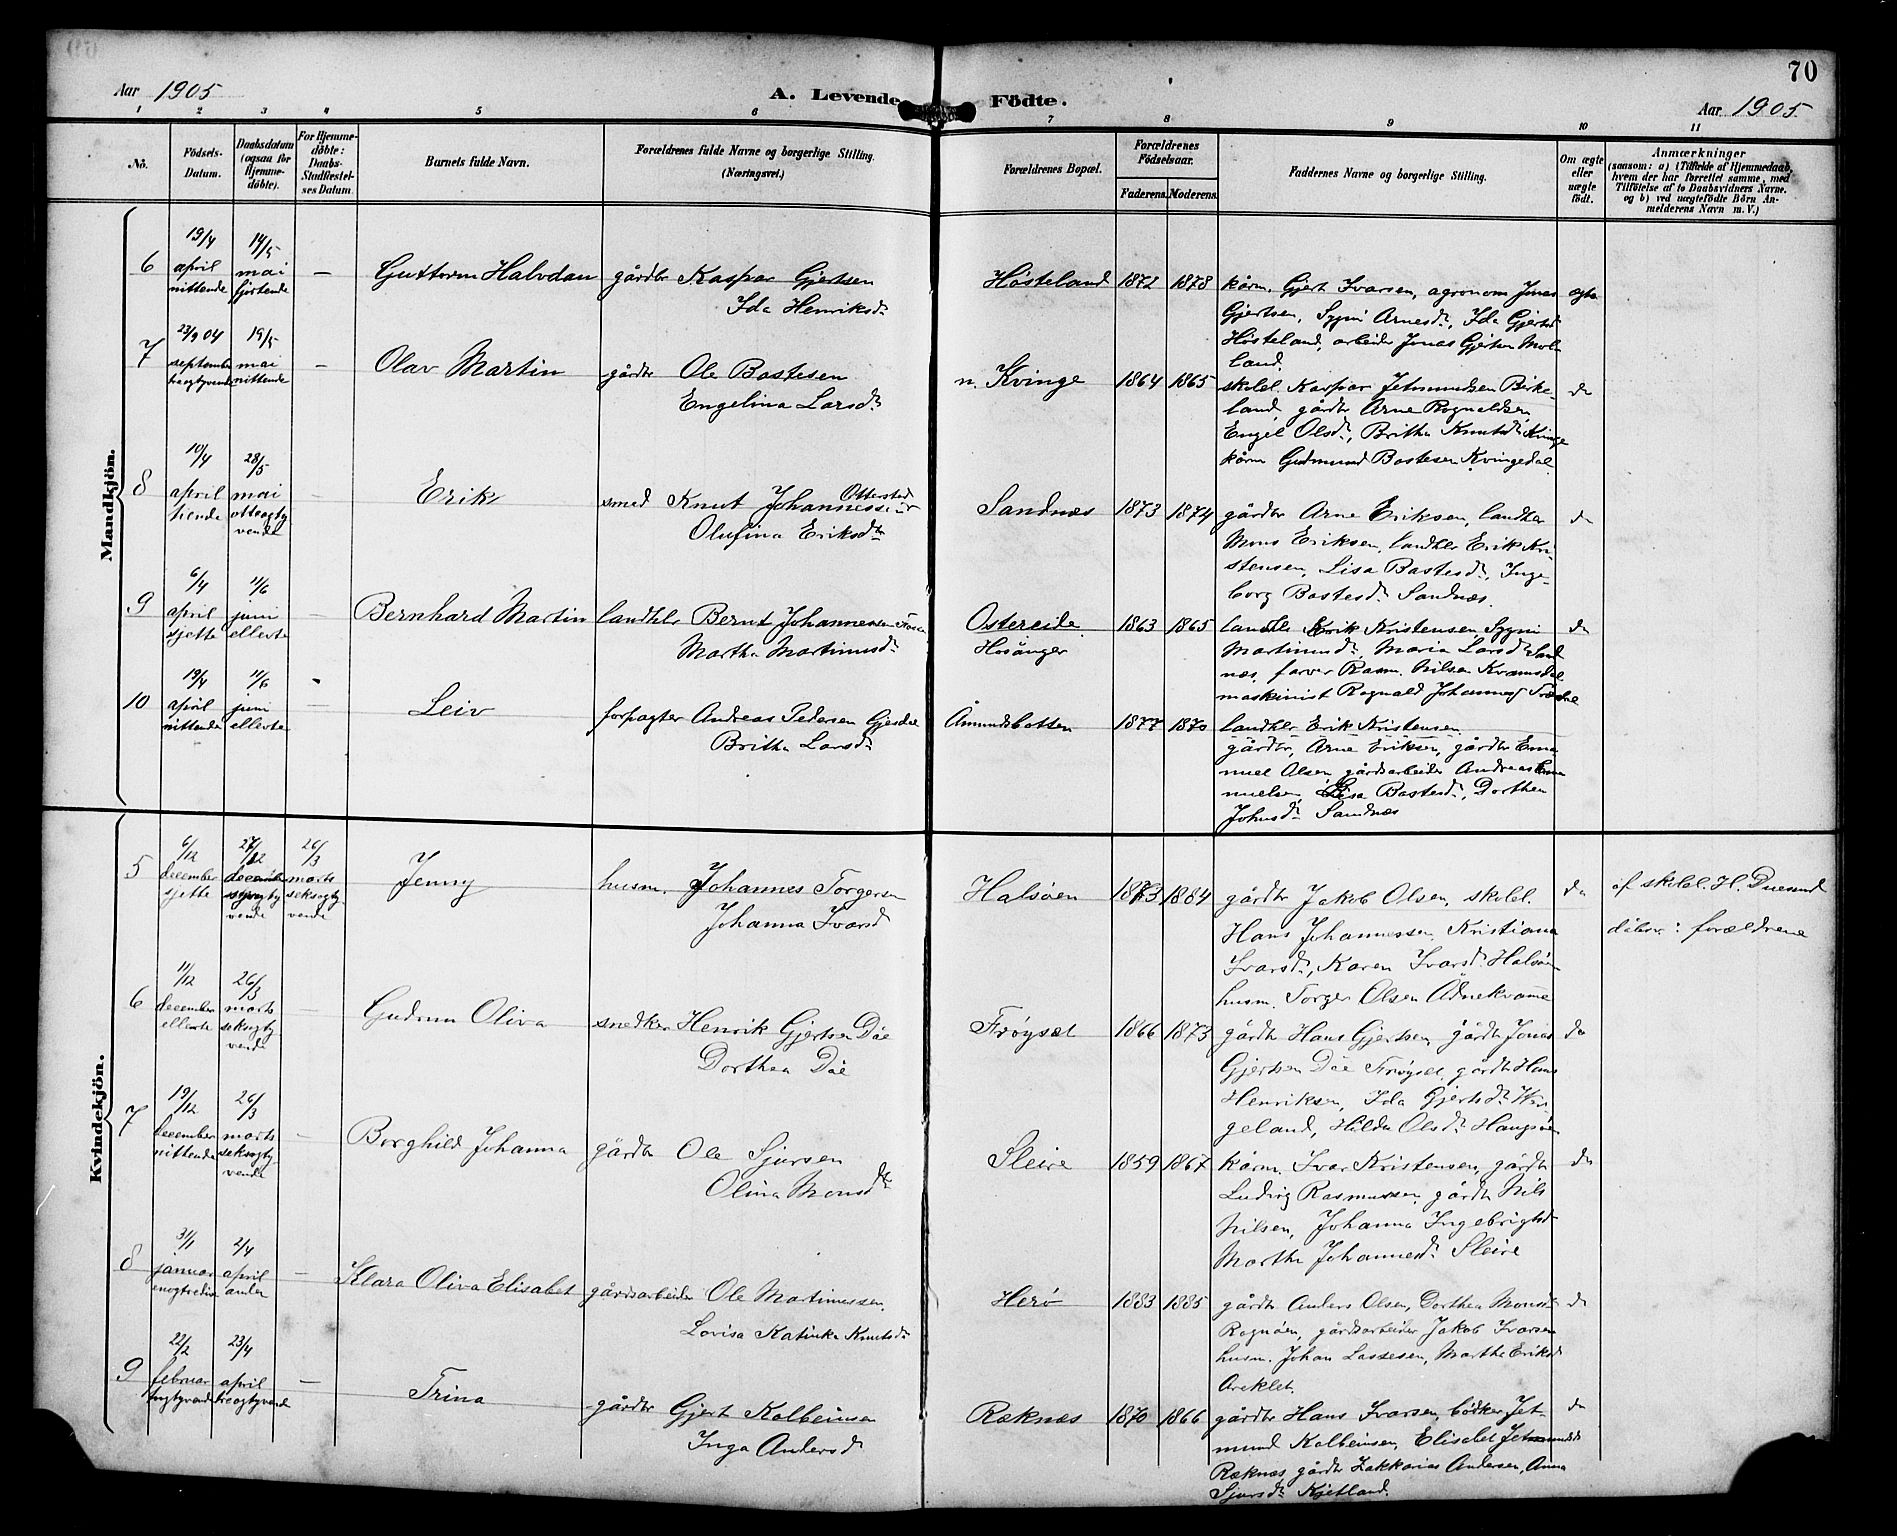 70
Aar 1905
A. Levende Födte.
Aar 1905.
1 2 3 4 5 6 7 8 9 10 11
No.
Födsels-
Datum.
Daabsdatum
(ogsaa for
Hjemme-
döbte).
For Hjemme-
döbte:
Daabs-
Stadfestel-
ses Datum.
Barnets fulde Navn.
Forældrenes fulde Navne og borgerlige Stilling.
(Næringsvei.)
Forældrenes Bopæl.
Forældrenes
Födselsaar.
Faderens. Moderens.
Faddernes Navne og borgerlige Stilling.
Om ægte
eller
uægte
födt.
Anmærkninger
(saasom: a) i Tilfælde af Hjemmedaab,
hvem der har forrettet samme, med
Tilföielse af to Daabsvidners Navne.
og b) ved uægtefödte Börn An-
melderens Navn m. V.)
Mandkjön.
6
19/4
april
nittende
14/5
mai
fjortende
—
Guttorm Halvdan
gårdbr Kaspar Gjertsen
Ida Henriksdr
Høsteland
1872 1878
kårm. Gjert Ivarsen, agronom Jonas
Gjertsen, Sygni Arnesdr, Ida Gjertsd
Høsteland, arbeider Jonas Gjertsen Mol-
land.
ægte
7
23/9 04
september
treogtyvende
19/5
mai
nittende
—
Olav Martin
gårdbr Ole Bastesen
Engelina Larsdr
n. Kvinge
1864 1865
skolel. Kaspar Jetmundsen Birke-
land, gårdbr Arne Rognaldsen
Engel Olsdr, Britha Knutsdr Kvinge
kårm Gudmund Bastesen Kvingedal
do
8
10/4
april
tiende
28/5
mai
otteogty
vende
—
Erik
smed Knut Johannessen Otterstad
Olufina Eriksdtr
Sandnæs
1873 1874
gårdbr Arne Eriksen, landhlr
Mons Eriksen, landhlr Erik Kri-
stensen, Lisa Bastesdr, Inge-
borg Bastesdr Sandnæs.
do
9
6/4
april
sjette
11/6
juni
ellevte
—
Bernhard Martin
landhlr Bernt Johannessen
Martha Martinusdr
Ostereide
Hosanger
1863 1865
landhlr Erik Kristensen Sygni
Martinusdr, Maria Larsdr Sand
næs, farver Rasm. Nilsen Kvamsdal
maskinist Rognald Johannes
do
10
19/4
april
nittende
11/6
juni
ellevte
—
Leiv
forpagter Andreas Pedersen Gjesdal
Britha Larsdr
Åmundsbotten
1877 1870
landhlr Erik Kristensen
gårdbr, Arne Eriksen, gårdbr Ema
nuel Olsen, gårdsarbeider Andreas Ema
nuelsen, Lisa Bastesdr, Dorthea
Johnsdr Sandnæs
Kvindekjön.
5
6/12
december
sjette
27/12
december
syvogty
vende
26/3
marts
seksogty-
vende
Jenny
husm. Johannes Torgersen
Johanna Ivarsd
Halsøen
1873 1884
gårdbr Jakob Olsen, skolel.
Hans Johannessen, Kristiana
Ivarsdr, Karen Ivarsdr Halsøen
husm. Torger Olsen Adnekvame
do
af skolel. H. Duesund
dåbsv: forældrene
6
11/12
december
ellevte
26/3
marts
seksogty
vende
—
Gudrun Oliva
snedker Henrik Gjertsen Däe
Dorthea Däe
Frøyset
1866 1873
gårdbr Hans Gjertsen, gårdbr Jonas
Gjertsen Däe Frøyset, gårdbr Hans
Henriksen, Ida Gjertsdr
geland, Hilda Olsdr Haugsøen
do
7
19/12
december
nittende
26/3
marts
seksogty-
vende
—
Borghild Johanna
gårdbr Ole Sjursen
Olina Monsdtr
Sleire
1859 1867
kårm. Ivar Kristensen, gårdbr
Ludvig Rasmussen, gårdbr Nils
Nilsen, Johanna Ingebrigtsd
Martha Johannesdr Sleire
do
8
31/1
januar
enogtredive
2/4
april
anden
—
Klara Oliva Elisabet
gårdsarbeider Ole Matinussen.
Lovisa Katinka Knutsdr
Herø
1883 1885
gårdbr Anders Olsen, Dorthea Monsdr
Rognøen, gårdsarbeider Jakob Ivarsen
husm. Johan Lassesen, Marthe Eriksd
Areklet.
do
9
22/2
februar
toogtyvende
23/4
april
treogtyvende
—
Trina
gårdbr Gjert Kolbeinsen
Inga Andersd
Ræknæs
1870 1866
gårdbr Hans Ivarsen, bødker Jet-
mund Kolbeinsen, Elisabet Jetmundsdr
Ræknæs, gårdbr Zakkarias Andersen, Anna
Sjursdr Kjetland.
do